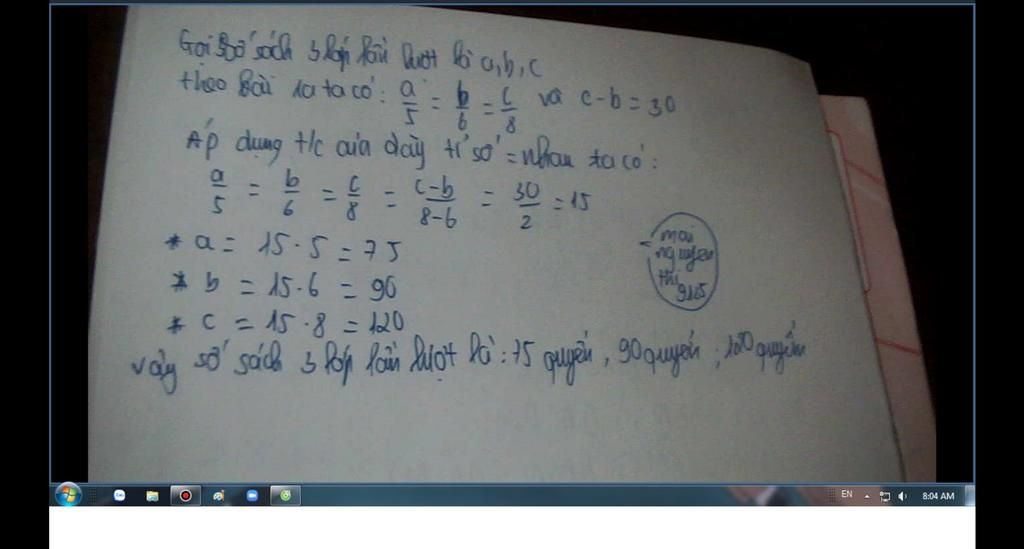 Gọi số sách 3 lớp lần lượt là a, b, c
theo bài ra ta có: a/5 = b/6 = c/8 và c-b = 30
Áp dụng t/c của dãy tỉ số = nhau ta có:
a/5 = b/6 = c/8 = c-b/8-6 = 30/2 = 15
* a = 15 . 5 = 75
* b = 15 . 6 = 90
* c = 15 . 8 = 120
mai
nguyen
thi
9165
Vậy số sách 3 lớp lần lượt là: 75 quyển, 90 quyển; 120 quyển
EN
8:04 AM